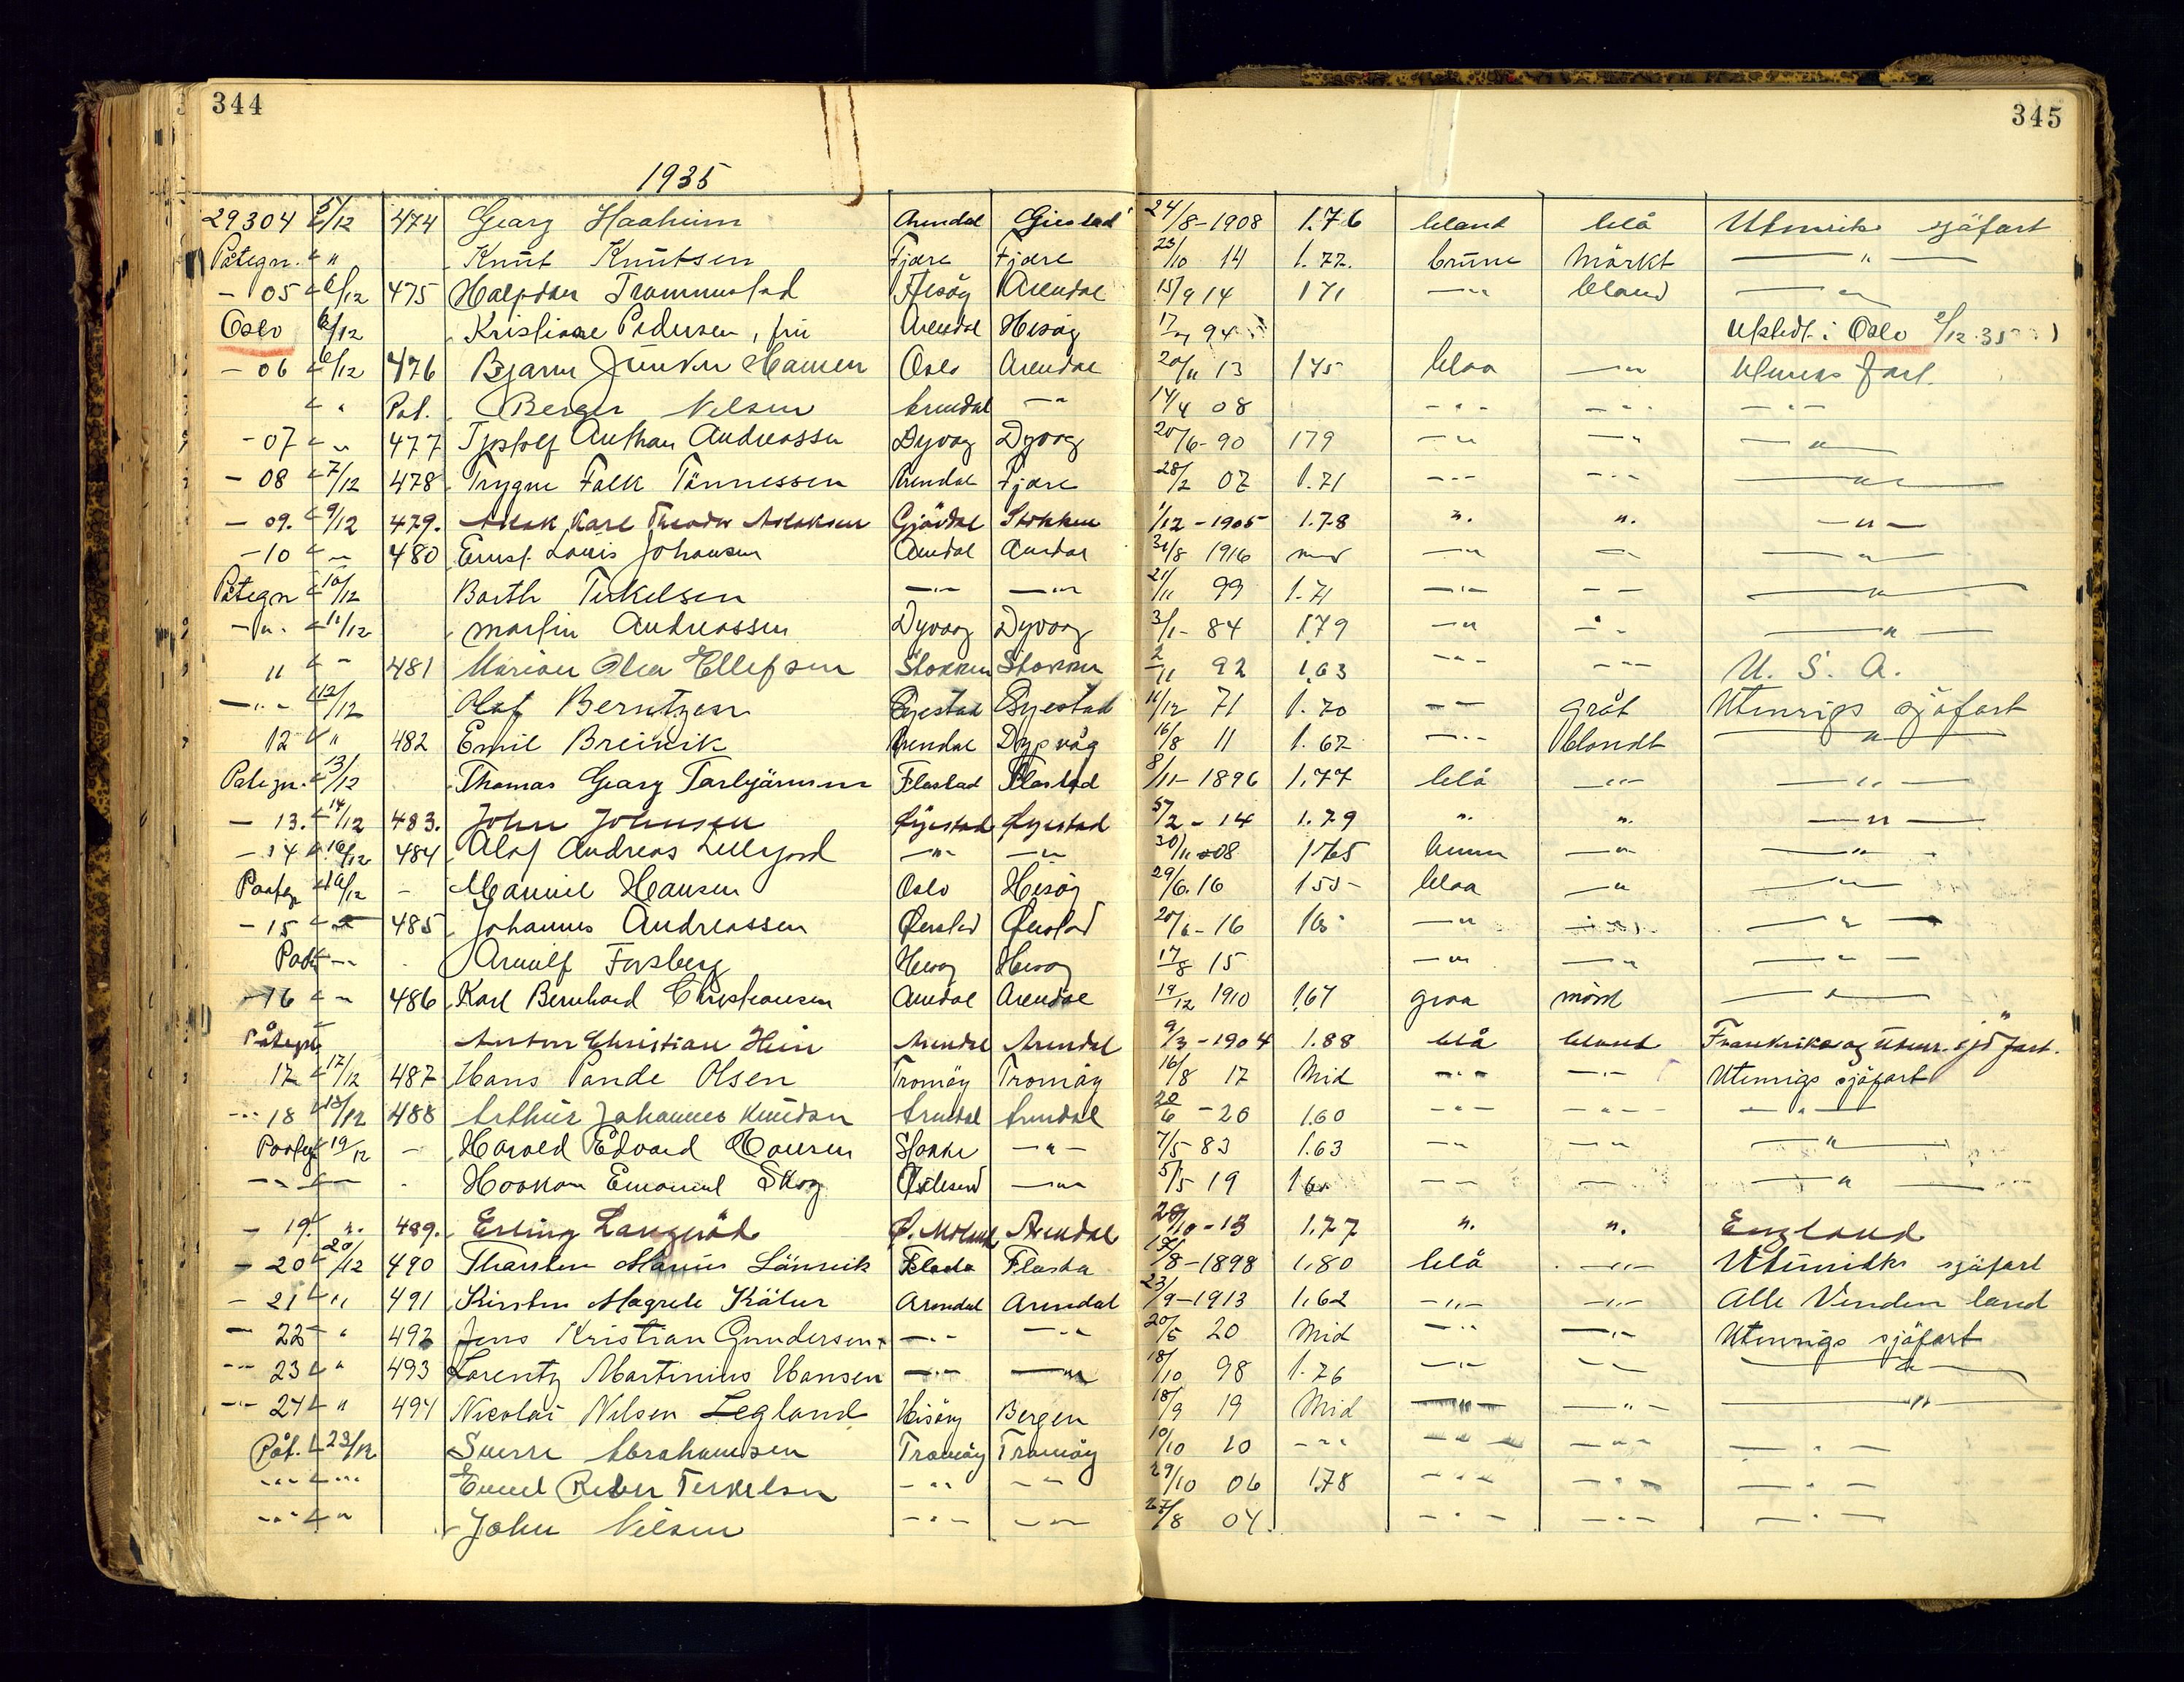 344
345
1935
29304 5/12 474 Georg Haaheim Arendal 24/8-1908 1.76 bland blå Utenriks sjöfart
Påtegn. " Knut Knutsen Fjære Fjære 23/10 14 1.72. brune mörkt — " —
- 05 6/12 475 Halfdan Trommestad Hisöy Arendal 15/9 14 171 — " bland — " —
Oslo 6/12 Kristiane Pedersen, fru Arendal Hisöy 94 utstedt i Oslo 2/12.35
- 06 6/12 476 Bjarne Hansen Oslo Arendal 20/11 13 175 blaa — " Utenriks fart.
" Pat. Berger Nilsen Arendal — " 14/4 08 - " - - " - - " -
- 07 " 477 Anthon Andreassen Dyvag Dyvag 20/6-90 179 — " — " — " —
- 08 7/12 478 Trygve Falk Tönnessen Arendal Fjære 28/2 07 1.71 - " - - " - — " —
- 09. 9/12 479. Aslak Karl Theodor Aslaksen Gjövdal Stokken 1/12-1905 1.78 ". ". — " —
- 10 " 480 Ernst Louis Johansen Arendal Arendal 31/8 1916 mid — " — — " —
Påtegn 10/12 Barth Terkelsen — " — — " — 21/11 99 1.71 — " — - - — " —
- " - 11/12 Martin Andreassen Dyvag Dyvag 3/1- 84 179 — " - " - — " —
11 " 481 Marian Olea Ellefsen Stokken Stokken 2/11 92 1.63 - " - - " - U. S. A.
— " - 12/12 Olaf Berntzen Øyestad Øyestad 11/12 71 1.70 — — gråt Utenrigs sjöfart
12 " 482 Emil Breivik Arendal Dypvåg 16/8 11 1.67 — " - blondt — " —
Pategn. 13/12 Thomas Georg Torbjörnsen Flostad Flostad 8/11-1896 1.77 blå — " — — " —
- 13. 14/12 483. John Johnsen Öyestad Öyestad 5/2 - 14 1.79 ". ". — " —
- 14 16/12 484 Olaf Andreas — " - — " 30/11-08 1765 brune — " — " —
Paateg 16/12 - Hansen Oslo Hisöy 29/6.16 155- blaa — " — " —
- 15 485 Johannes Andreassen Øiestad Øiestad 20/6-16 — " — " —
Pat — " Arnulf Forsberg Hisöy Hisöy 17/8 15 — " — " — " —
- 16 " 486 Karl Bernhard Christiansen Arendal Arendal 19/12 1910 167 graa mörk — " —
Påtegn Anton Christian Hein Arendal Arendal 9/3-1904 1.88 blå bland Frankrike og utenr. sjöfart.
17 17/12 487 Hans Pande Olsen Tromöy Tromöy 16/8 17 Mid — " — — " — Utenrigs sjöfart
- " - 18 18/12 488 Arthur Johannes Knudsen Arendal Arendal 20/6 - 20 1.60 - " - - " - — " —
Paateg 19/12 - Harald Edvard Hansen Stokke — " — 7/5-83 1.63 — " — " — " —
- " - — - Haakon Emanuel Skog — " — 5/5 19 — — — — " —
- 19. ". 489. Erling Ø. Moland Arendal 28/10-13 1.77 ". ". England
- 20 20/12 490 Thorsten Marius Lönnvik Flosta Flosta /8-1898 1.80 blå — " — Utenriks sjöfart
- 21 " 491 Kirsten Magrete Arendal Arendal 23/9-1913 1.62 — " — — " — Alle Verden land
- 22 " 492 Jens Kristian Gundersen — " - — " - 20/5 20 Mid — " - — " - Utenrigs sjöfart
- " 23 " 493 Lorentz Martinius Hansen — " — — " 18/10 98 1.76 — " - — — — " —
- " 24 " 494 Nicolai Nilsen Legland Hisöy Bergen 18/9 19 Mid — " — — " - — " —
Påt. 23/12 Sverre Abrahamsen Tromöy Tromöy 10/10 10 - " - - " - - " - — " —
- " - - " - Emil Terkelsen - " - — — 29/10 06 178 - " - - " - — " —
- " - " John Nilsen - " - — " — 27/8 04. - " - - " - — " —